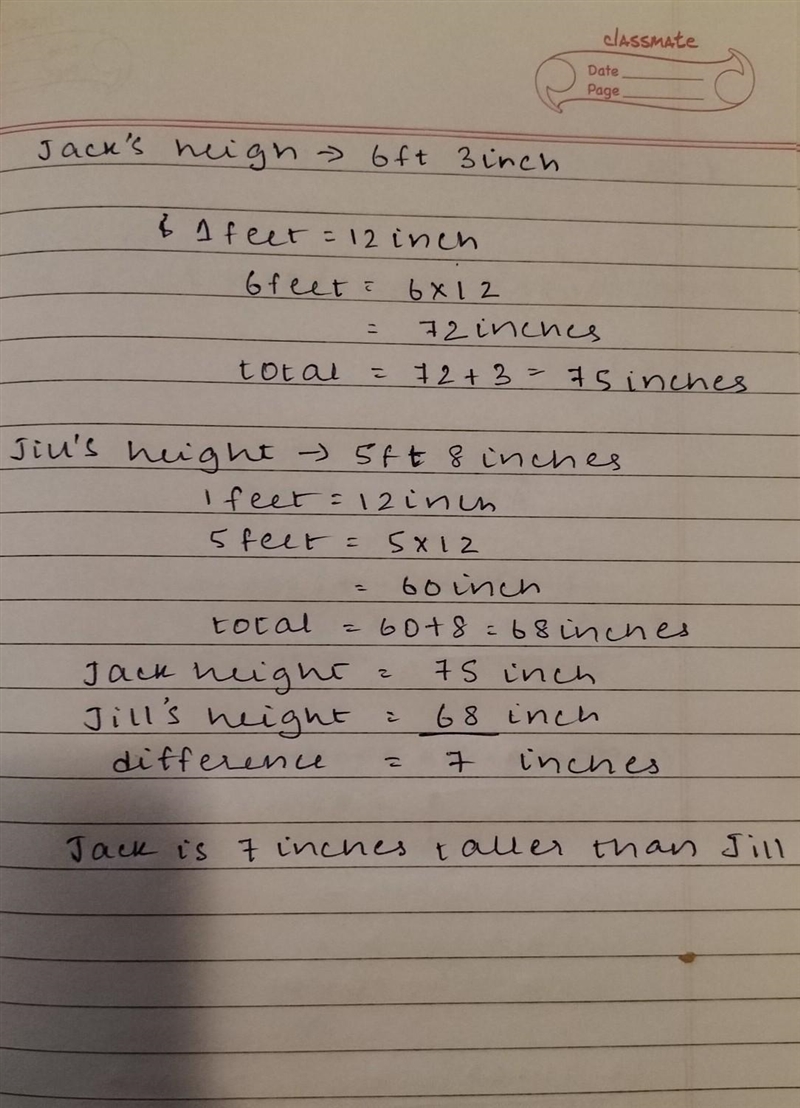 classmate
Date
Page
Jack's heigh → 6ft 3inch
1 feet = 12 inch
6 feet = 6 x 12
= 72 inches
total = 72 + 3 = 75 inches
Jill's height → 5ft 8 inches
1 feet = 12 inch
5 feet = 5 x 12
= 60 inch
total = 60 + 8 = 68 inches
Jack height = 75 inch
Jill's height = 68 inch
difference = 7 inches
Jack is 7 inches taller than Jill